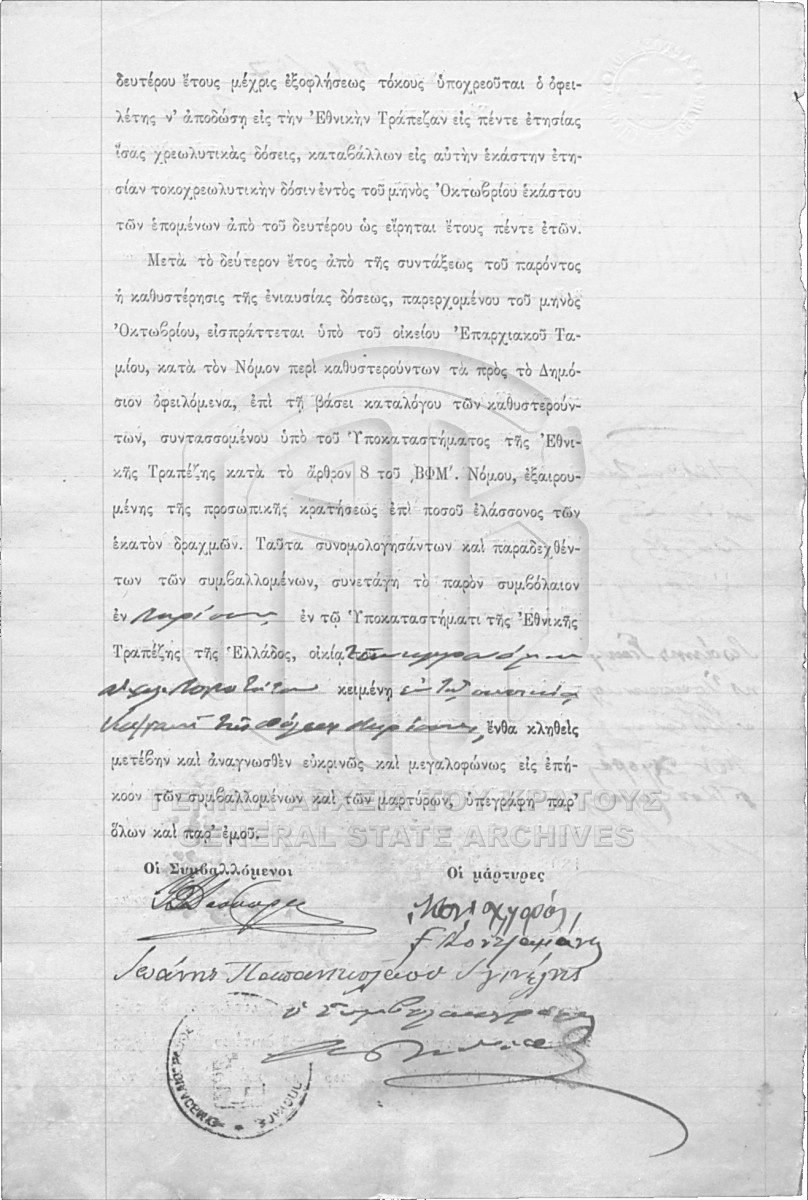 δευτέρου ἔτους μέχρις ἐξοφλήσεως τόκους ὑποχρεοῦται ὁ ὀφει-
λέτης ν' ἀποδώσῃ εἰς τὴν Ἐθνικὴν Τράπεζαν εἰς πέντε ἐτησίας
ἴσας χρεωλυτικὰς δόσεις, καταβάλλων εἰς αὐτὴν ἑκάστην ἐτη-
σίαν τοκοχρεωλυτικὴν δόσιν ἐντὸς τοῦ μηνὸς Ὀκτωβρίου ἑκάστου
τῶν ἑπομένων ἀπὸ τοῦ δευτέρου ὡς εἴρηται ἔτους πέντε ἐτῶν.
Μετὰ τὸ δεύτερον ἔτος ἀπὸ τῆς συντάξεως τοῦ παρόντος
ἡ καθυστέρησις τῆς ἐνιαυσίας δόσεως, παρερχομένου τοῦ μηνὸς
Ὀκτωβρίου, εἰσπράττεται ὑπὸ τοῦ οἰκείου Ἐπαρχιακοῦ Τα-
μίου, κατὰ τὸν Νόμον περὶ καθυστερούντων τὰ πρὸς τὸ Δημό-
σιον ὀφειλόμενα, ἐπὶ τῇ βάσει καταλόγου τῶν καθυστερούν-
των, συντασσομένου ὑπὸ τοῦ Ὑποκαταστήματος τῆς Ἐθνι-
κῆς Τραπέζης κατὰ τὸ ἄρθρον 8 τοῦ ͵ΒΦΜ'. Νόμου, ἐξαιρου-
μένης τῆς προσωπικῆς κρατήσεως ἐπὶ ποσοῦ ἐλάσσονος τῶν
ἑκατὸν δραχμῶν. Ταῦτα συνομολογησάντων καὶ παραδεχθέν-
των τῶν συμβαλλομένων, συνετάγη τὸ παρὸν συμβόλαιον
ἐν Λαρίσσῃ ἐν τῷ Ὑποκαταστήματι τῆς Ἐθνικῆς
Τραπέζης τῆς Ἑλλάδος, οἰκίᾳ
κειμένῃ ἐν τῇ συνοικίᾳ
τῆς πόλεως Λαρίσσης, ἔνθα κληθεὶς
μετέβην καὶ ἀναγνωσθὲν εὐκρινῶς καὶ μεγαλοφώνως εἰς ἐπή-
κοον τῶν συμβαλλομένων καὶ τῶν μαρτύρων, ὑπεγράφη παρ'
ὅλων καὶ παρ' ἐμοῦ.
ΓΕΝΙΚΑ ΑΡΧΕΙΑ ΤΟΥ ΚΡΑΤΟΥΣ
GENERAL STATE ARCHIVES
Οἱ Συμβαλλόμενοι
Οἱ μάρτυρες
Ἰωάνης Παπανικολάου
ὁ Συμβολαιογράφος